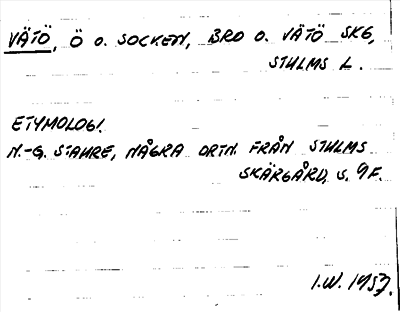 VÄTÖ, Ö O. SOCKEN, BRO O. VÄTÖ SKG,
STHLMS L.
ETYMOLOGI.
N.-G. STAHRE, NÅGRA ORTN. FRÅN STHLMS
SKÄRGÅRD, S. 9F.
I.W. 1953.